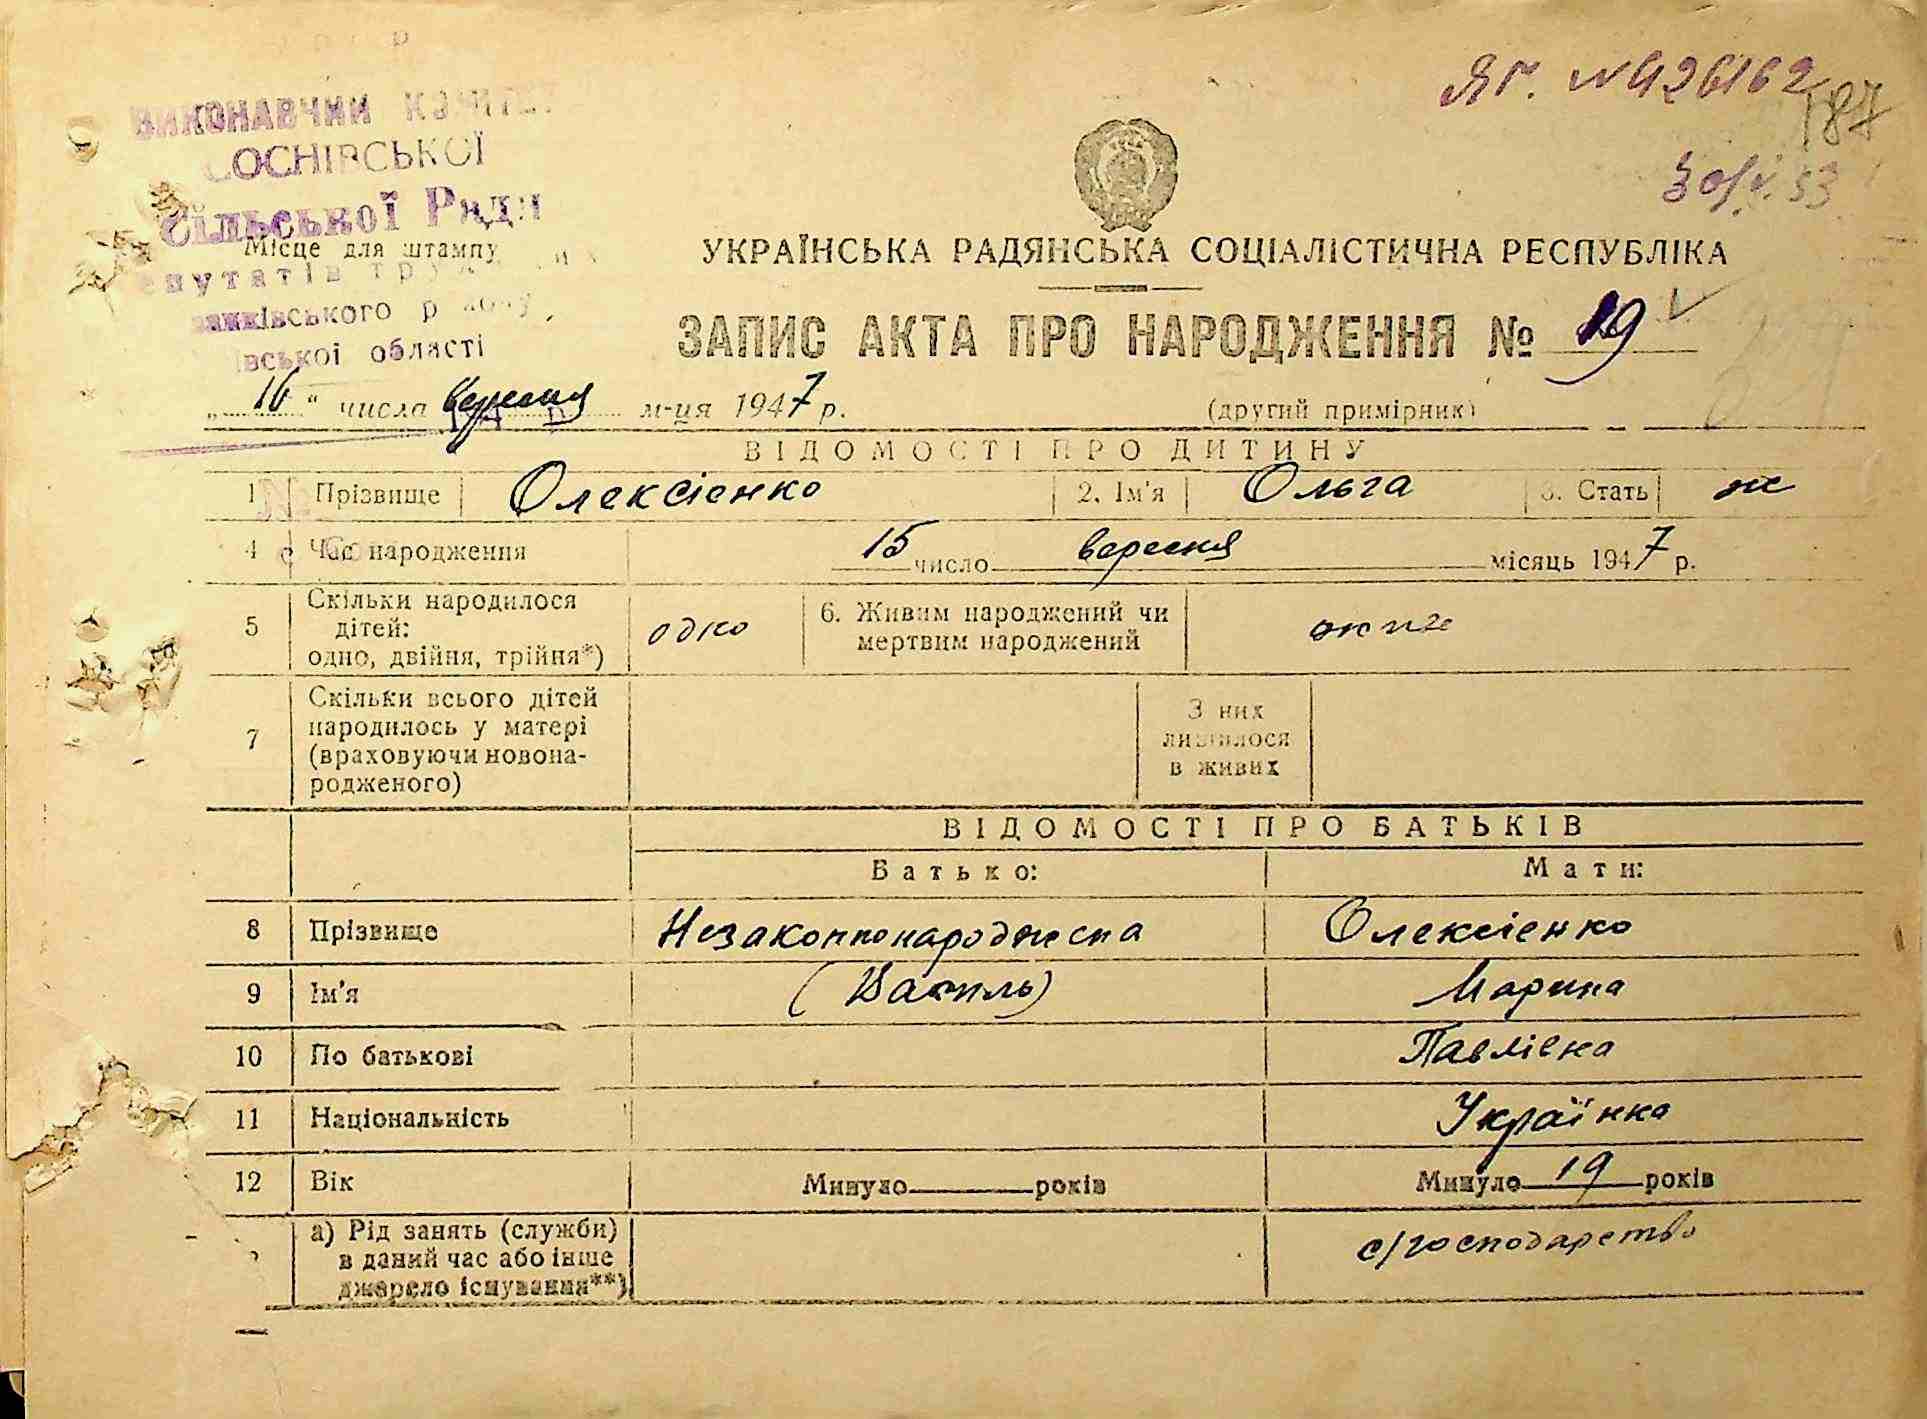 ЯГ. №426162
187
30/V. 53
ВИКОНАВЧИЙ КОМІТЕТ
СОСНІВСЬКОЇ
Сільської Ради
Місце для штампу
депутатів
івського району
івської області
УКРАЇНСЬКА РАДЯНСЬКА СОЦІАЛІСТИЧНА РЕСПУБЛІКА
ЗАПИС АКТА ПРО НАРОДЖЕННЯ № 19
„16“ числа вересня м-ця 1947 р. (другий примірник)
ВІДОМОСТІ ПРО ДИТИНУ
1 Прізвище Олексієнко 2. Ім'я Ольга 3. Стать ж
4 Час народження 15 число вересня місяць 1947 р.
5 Скільки народилося дітей: одно, двійня, трійня*) одно 6. Живим народжений чи мертвим народжений живе
7 Скільки всього дітей народилось у матері (враховуючи новонародженого) З них лишилося в живих
ВІДОМОСТІ ПРО БАТЬКІВ
Батько: Мати:
8 Прізвище Незаконнонароджена Олексієнко
9 Ім'я (Василь) Марина
10 По батькові Павлівна
11 Національність Українка
12 Вік Минуло років Минуло 19 років
а) Рід занять (служби) в даний час або інше джерело існування**) с/господарство